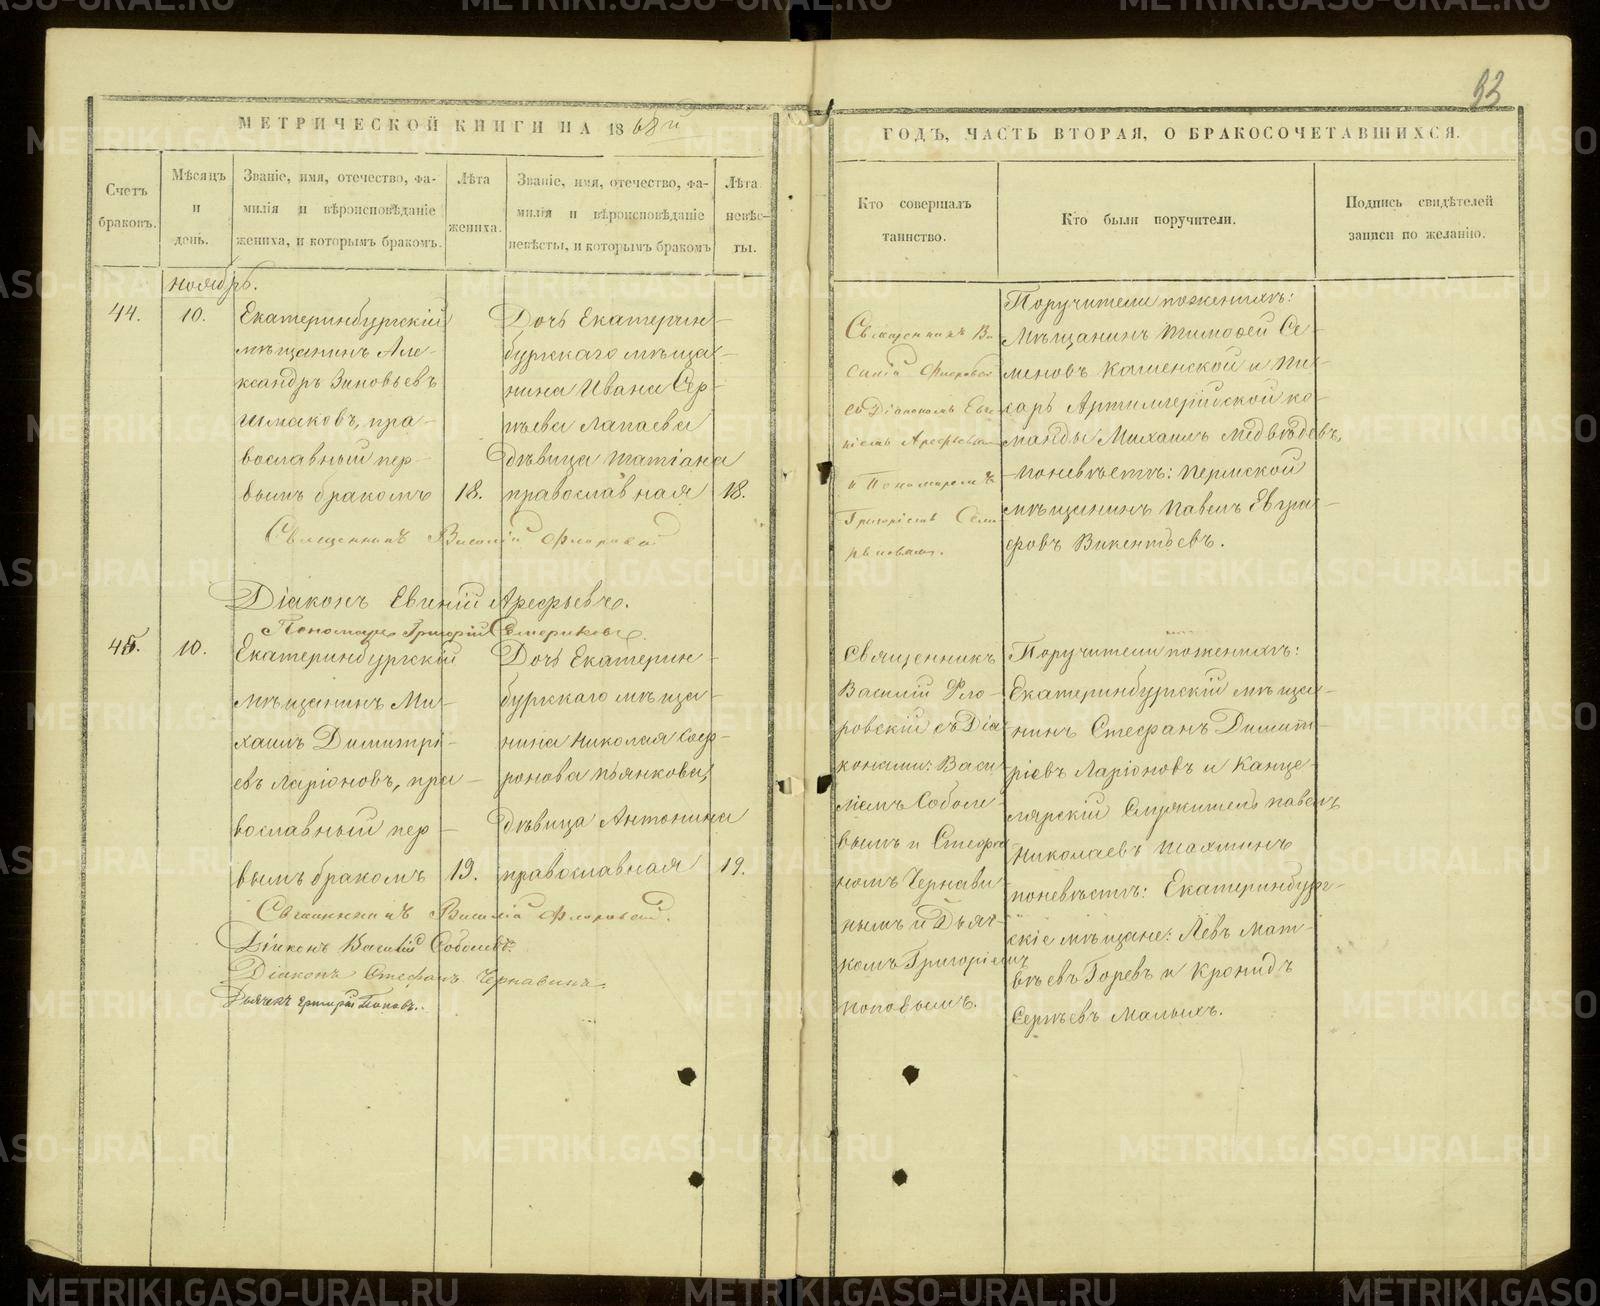 93
МЕТРИЧЕСКОЙ КНИГИ НА 1868й
ГОДЪ, ЧАСТЬ ВТОРАЯ, О БРАКОСОЧЕТАВШИХСЯ.
Счетъ
браковъ.
Мѣсяцъ
и
день.
Званіе, имя, отечество, фа-
милія и вѣроисповѣданіе
жениха, и которымъ бракомъ.
Лѣта
жениха.
Званіе, имя, отечество, фа-
милія и вѣроисповѣданіе
невѣсты, и которымъ бракомъ
Лѣта
невѣс-
ты.
Кто совершалъ
таинство.
Кто были поручители.
Подпись свидѣтелей
записи по желанію.
ноябрь.
44.
10.
Екатеринбургскій
мѣщанинъ Але-
ксандръ Зиновьевъ
пра-
вославный пер-
вымъ бракомъ
18.
Дочь Екатерин-
бургскаго мѣща-
нина Ивана Сер-
гѣева Лапаева
дѣвица Татіана
православная
18.
Священникъ Ва-
силій Флоровскій
съ Діакономъ Евге-
ніемъ Арефьевымъ
и Пономаремъ
Григоріемъ Семе-
риковымъ.
Поручители по женихѣ:
Мѣщанинъ Тимофей Се-
меновъ Каменской и Пи-
сарь Артиллерійской ко-
манды Михаилъ Медвѣдевъ,
по невѣстѣ: Пермской
мѣщанинъ Павелъ Евгра-
фовъ Викентьевъ.
Священникъ Василій Флоровскій
Діаконъ Евгеній Арефьевъ.
Пономарь Григорій Семериковъ.
45.
10.
Екатеринбургскій
мѣщанинъ Ми-
хаилъ Димитрі-
евъ Ларіоновъ, пра-
вославный пер-
вымъ бракомъ
19.
Дочь Екатерин-
бургскаго мѣща-
нина Николая Соф-
ронова Пьянкова,
дѣвица Антонина
православная
19.
Священникъ
Василій Фло-
ровскій съ Діа-
конами: Васи-
ліемъ Соболе-
вымъ и Стефа-
номъ Чернави-
нымъ и Дьяч-
комъ Григоріемъ
Поповымъ.
Поручители по женихѣ:
Екатеринбургскій мѣща-
нинъ Стефанъ Димит-
ріевъ Ларіоновъ и Канце-
лярскій Служитель Павелъ
Николаевъ Шахминъ
по невѣстѣ: Екатеринбург-
скіе мѣщане: Левъ Мат-
вѣевъ Горевъ и Кронидъ
Сергѣевъ Малыхъ.
Священникъ Василій Флоровскій.
Діаконъ Василій Соболевъ.
Діаконъ Стефанъ Чернавинъ.
Дьячекъ Григорій Поповъ.
METRIKI.GASO-URAL.RU